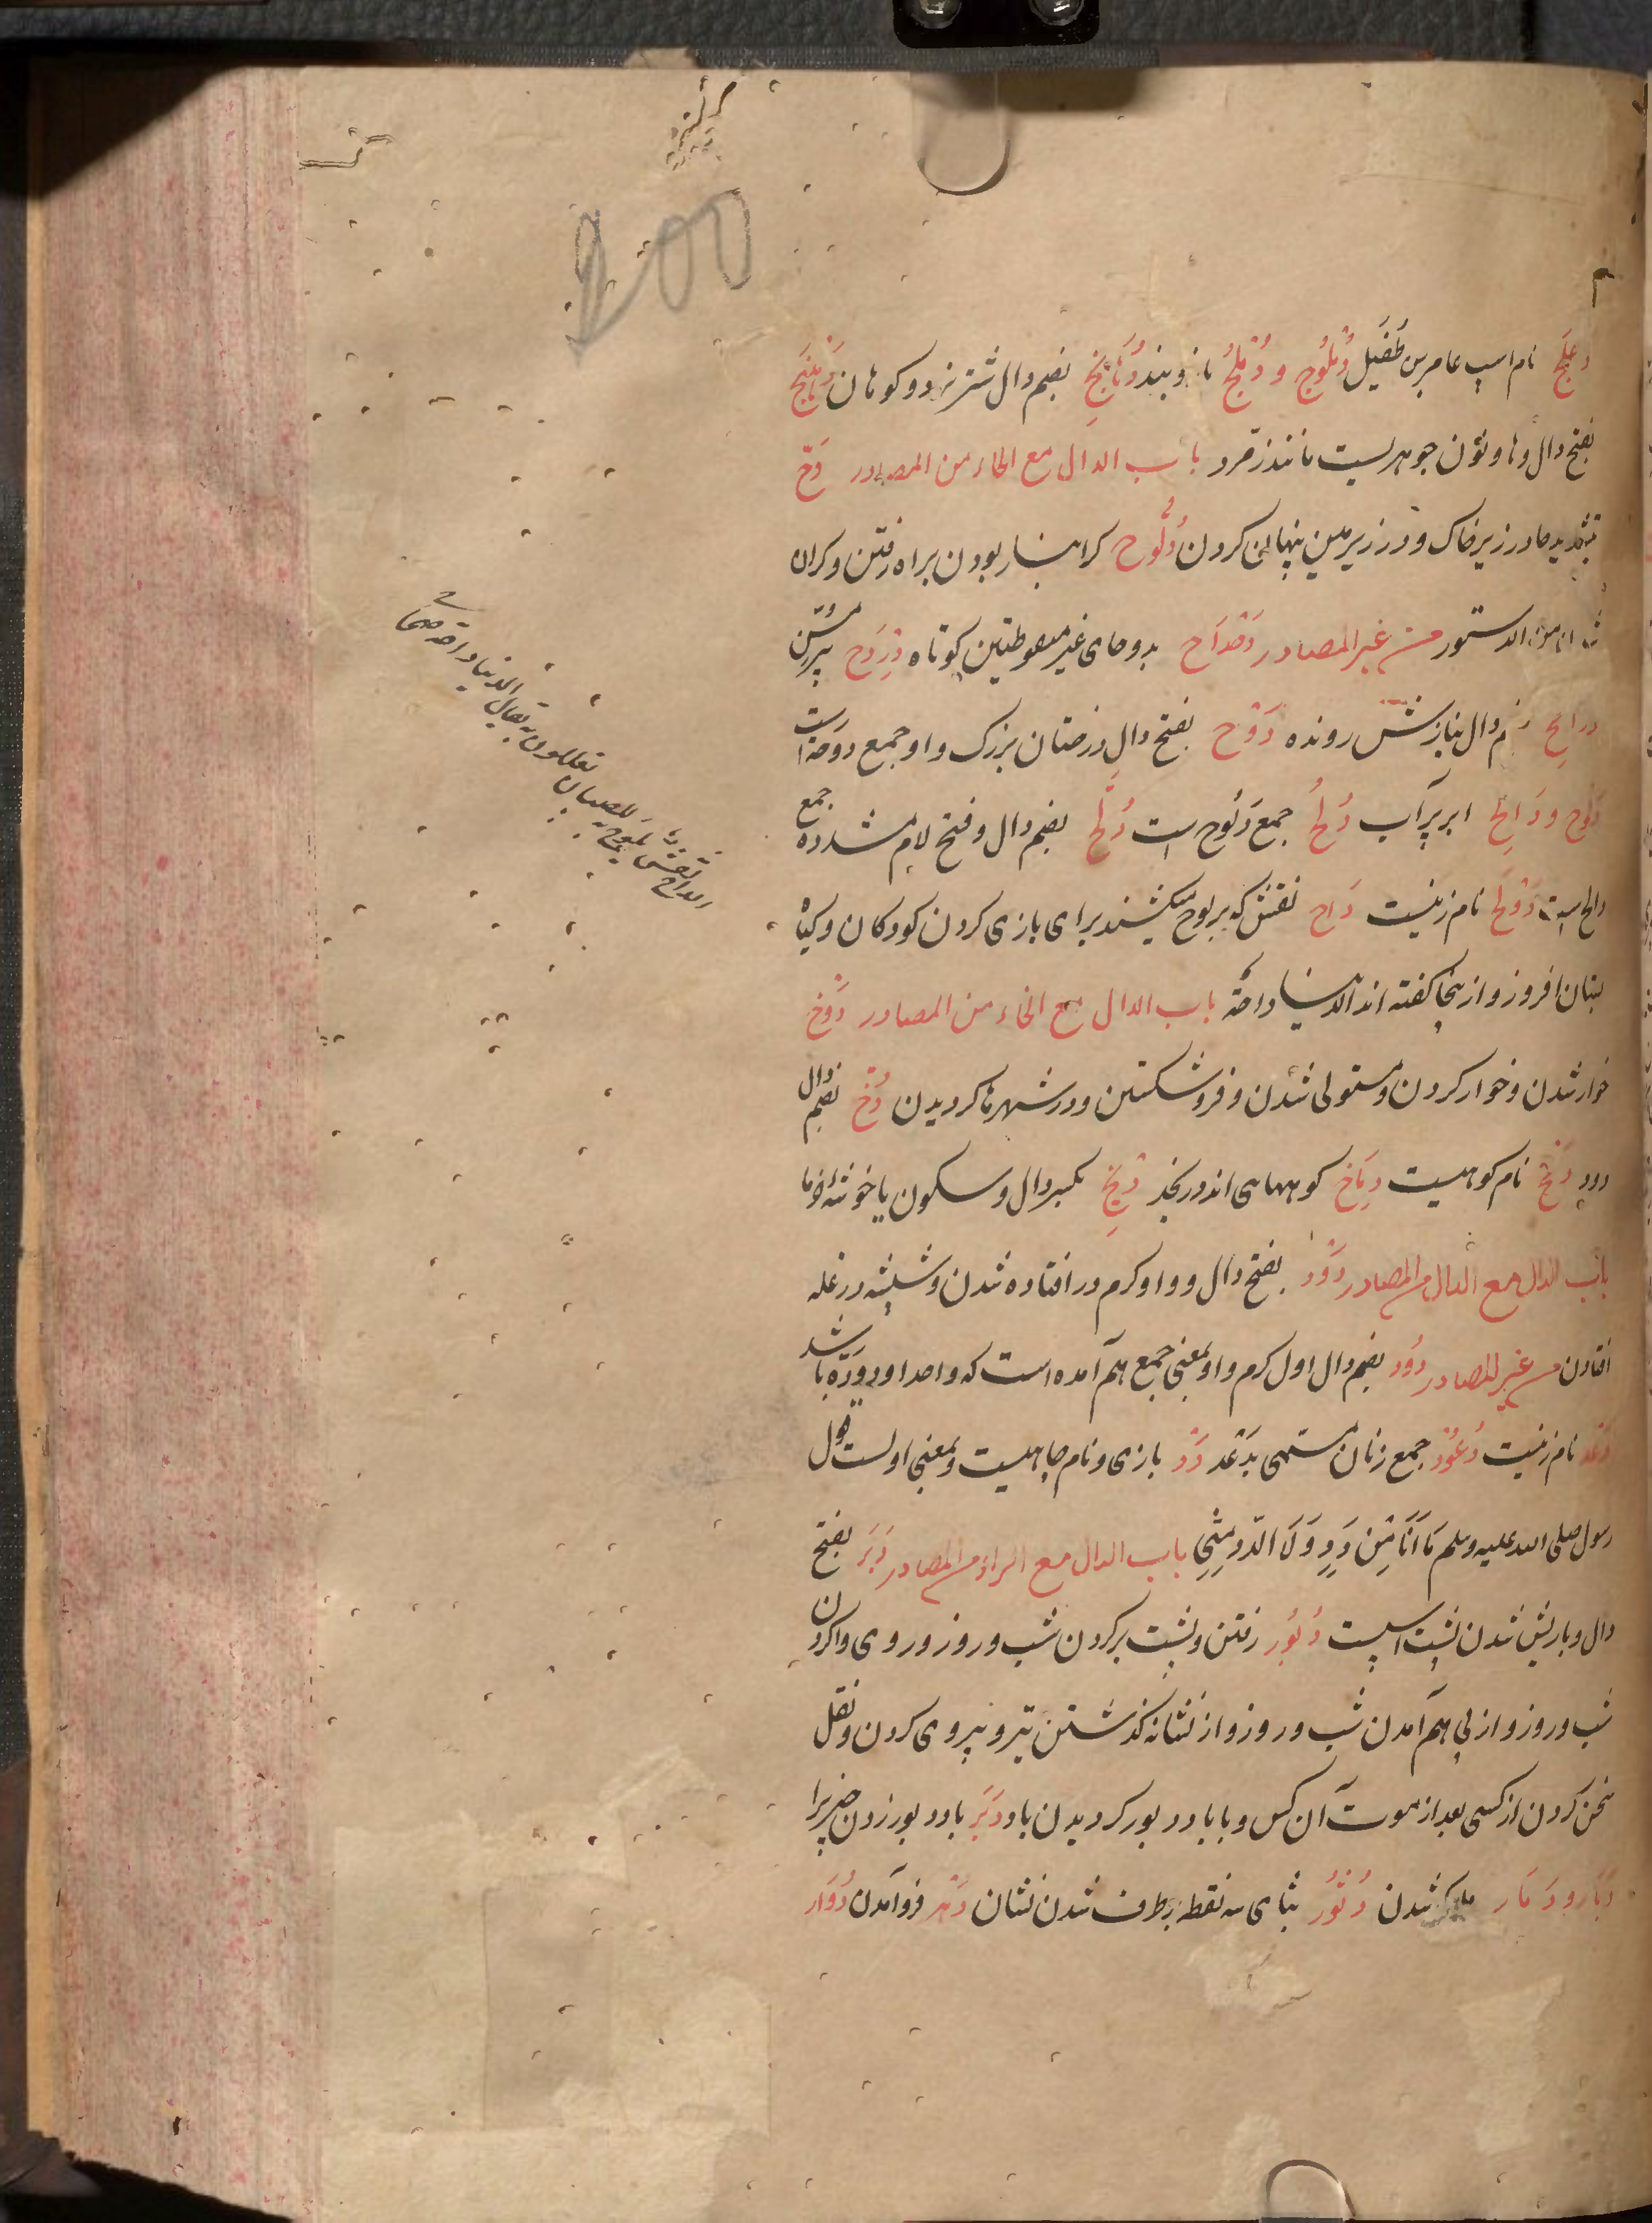 دعلج نام اسپ عامر بن طفیل دُملُوج و دُملُج بازوبند دُهَانِج بضم دال شتر نر دو کوهان دَهنَج
بفتح دال و ها و نون جوهریست مانند زمرد باب الدال مع الحاء من المصادر دَحّ
بتشدید حا در زیر خاک و در زیر زمین پنهان کردن دُلُوح کرانبار بودن براه رفتن و کران
من الدستور من غیر المصادر دَحْدَاح بدو حای غیر منقوطتین کوتاه دِرْدِح پیر مسن
دال بنازش رونده دَوْح بفتح دال درختان بزرک و او جمع دوحة است
دَلُوح و دَالِح ابر پر آب دُلُح جمع دَلُوح است دُلَّح بضم دال و فتح لام مشدده جمع
دالح است دَوْلَح نام زنیست دَاح نقش که بر لوح میکشند برای بازی کردن کودکان و کیاه
بستان افروز و از ینجا کفته اند الدنیا داحة باب الدال مع الخاء من المصادر دَوْخ
خوار شدن و خوار کردن و مستولی شدن و فرو شکستن و در شهرها کردیدن دُخّ بضم دال
دود دَمْخ نام کوهیست دِمَاخ کوههای اندر بنجد دِیْخ بکسر دال و سکون یا خوشه خرما
باب الدال مع الدال من المصادر دَوَد بفتح دال و واو کرم در افتاده شدن و شپشه در غله
افتادن من غیر المصادر دُود بضم دال اول کرم و او بمعنی جمع هم آمده است که واحد او دودة باشد
دَعْد نام زنیست دُعُود جمع زنان مسمی بدَعْد دَد بازی و نام جاهیست و بمعنی اولست قول
رسول صلی الله علیه وسلم مَا اَنَا مِن دَدٍ وَلَا الدَّدُ مِنِّی باب الدال مع الراء من المصادر دَبَر بفتح
دال و با ریش شدن پشت اسپست دُبُور رفتن و پشت بر کردن شب و روز و روی وا کردن
شب و روز و از پی هم آمدن شب و روز و از نشانه کذشتن تیر و پیروی کردن و نقل
سخن کردن از کسی بعد از موت آن کس و با باد دبور کردیدن باد دَبَر باد دبور زدن چیز را
دَبَار و دَمَار هلاک شدن دُثُور بثای سه نقطه برطرف شدن نشان دَهْر فرو آمدن دُوَار
الداح نقش یلوح به للصبیان
یعللون به یقال الدنیا داحة صحاح